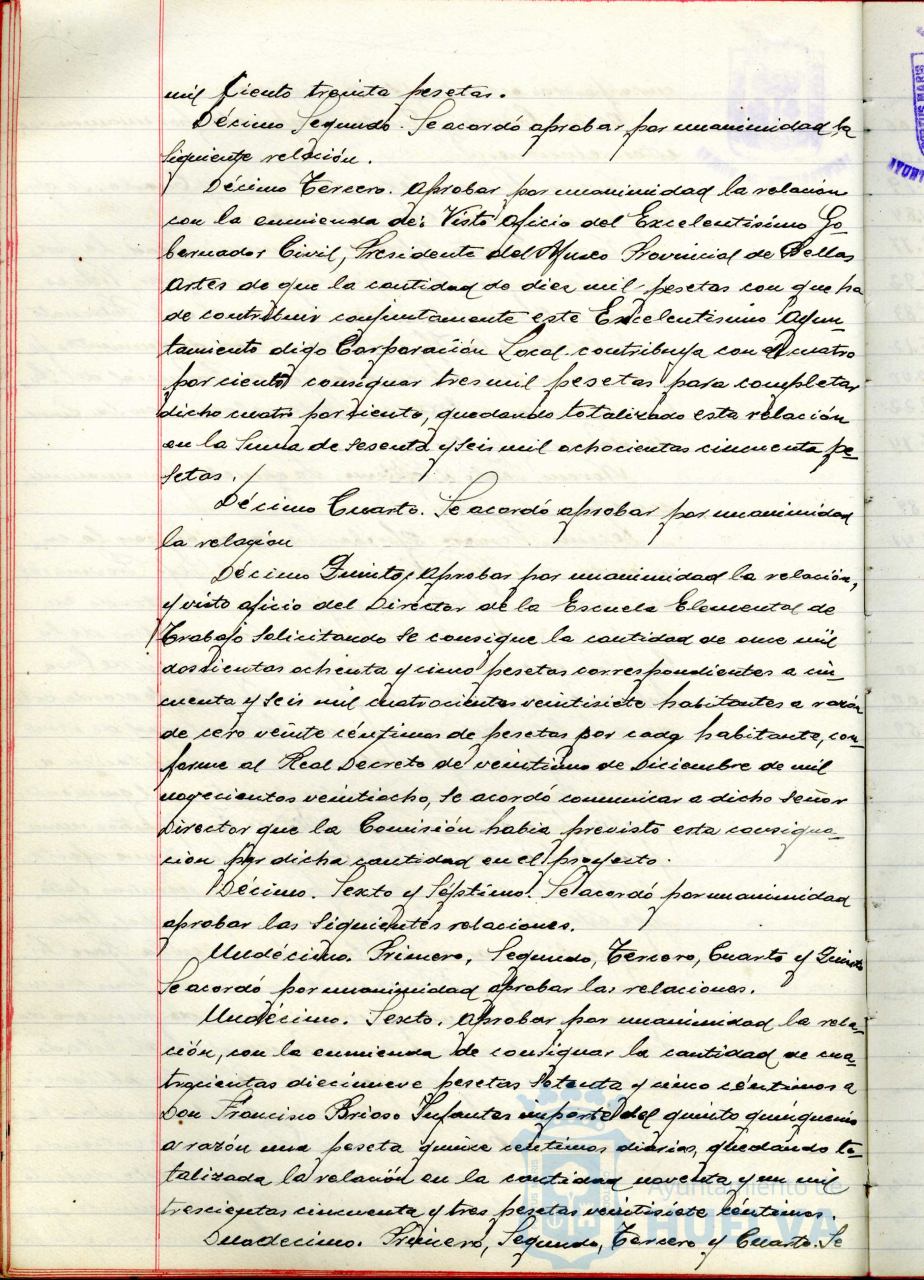 mil ciento treinta pesetas.
Décimo Segundo. Se acordó aprobar por unanimidad la
siguiente relación.
Décimo Tercero. Aprobar por unanimidad la relación
con la enmienda de: Visto oficio del Excelentísimo Go-
bernador Civil, Presidente del Museo Provincial de Bellas
Artes de que la cantidad de diez mil pesetas con que ha
de contribuir conjuntamente este Excelentisimo Ayun-
tamiento digo Corporación Local contribuya con el cuatro
por ciento consignar tres mil pesetas para completar
dicho cuatro por ciento, quedando totalizado esta relación
en la suma de sesenta y seis mil ochocientas cincuenta pe-
setas.
Décimo Cuarto. Se acordó aprobar por unanimidad
la relación
Décimo Quinto, Aprobar por unanimidad la relación,
y visto oficio del Director de la Escuela Elemental de
Trabajo solicitando se consigne la cantidad de once mil
doscientas ochenta y cinco pesetas correspondientes a cin-
cuenta y seis mil cuatrocientos veintisiete habitantes a razón
de cero veinte céntimos de pesetas por cada habitante, con-
forme al Real Decreto de veintiuno de Diciembre de mil
novecientos veintiocho, se acordó comunicar a dicho Señor
Director que la Comisión había previsto esta consigna-
ción por dicha cantidad en el proyecto.
Décimo. Sexto y Séptimo. Se acordó por unanimidad
aprobar las siguientes relaciones.
Undécimo. Primero, Segundo, Tercero, Cuarto y Quinto
Se acordó por unanimidad aprobar las relaciones.
Undécimo. Sexto. Aprobar por unanimidad la rela-
ción, con la enmienda de consignar la cantidad de cua-
trocientas diecinueve pesetas setenta y cinco céntimos a
Don Francisco Brioso Infantes importe del quinto quinquenio
a razón una peseta quince céntimos diarios, quedando to-
talizada la relación en la cantidad noventa y un mil
trescientas cincuenta y tres pesetas veintisiete céntimos.
Duodecimo. Primero, Segundo, Tercero y Cuarto. Se
Ayuntamiento de
HUELVA